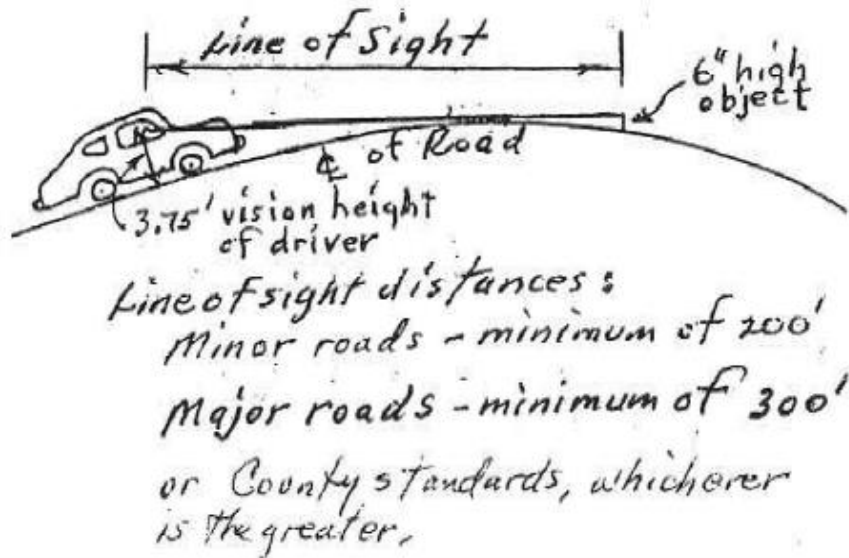 Line of Sight
6" high
object
℄ of Road
3.75' vision height
of driver
Line of sight distances:
Minor roads - minimum of 200'
Major roads - minimum of 300'
or County standards, whichever
is the greater.